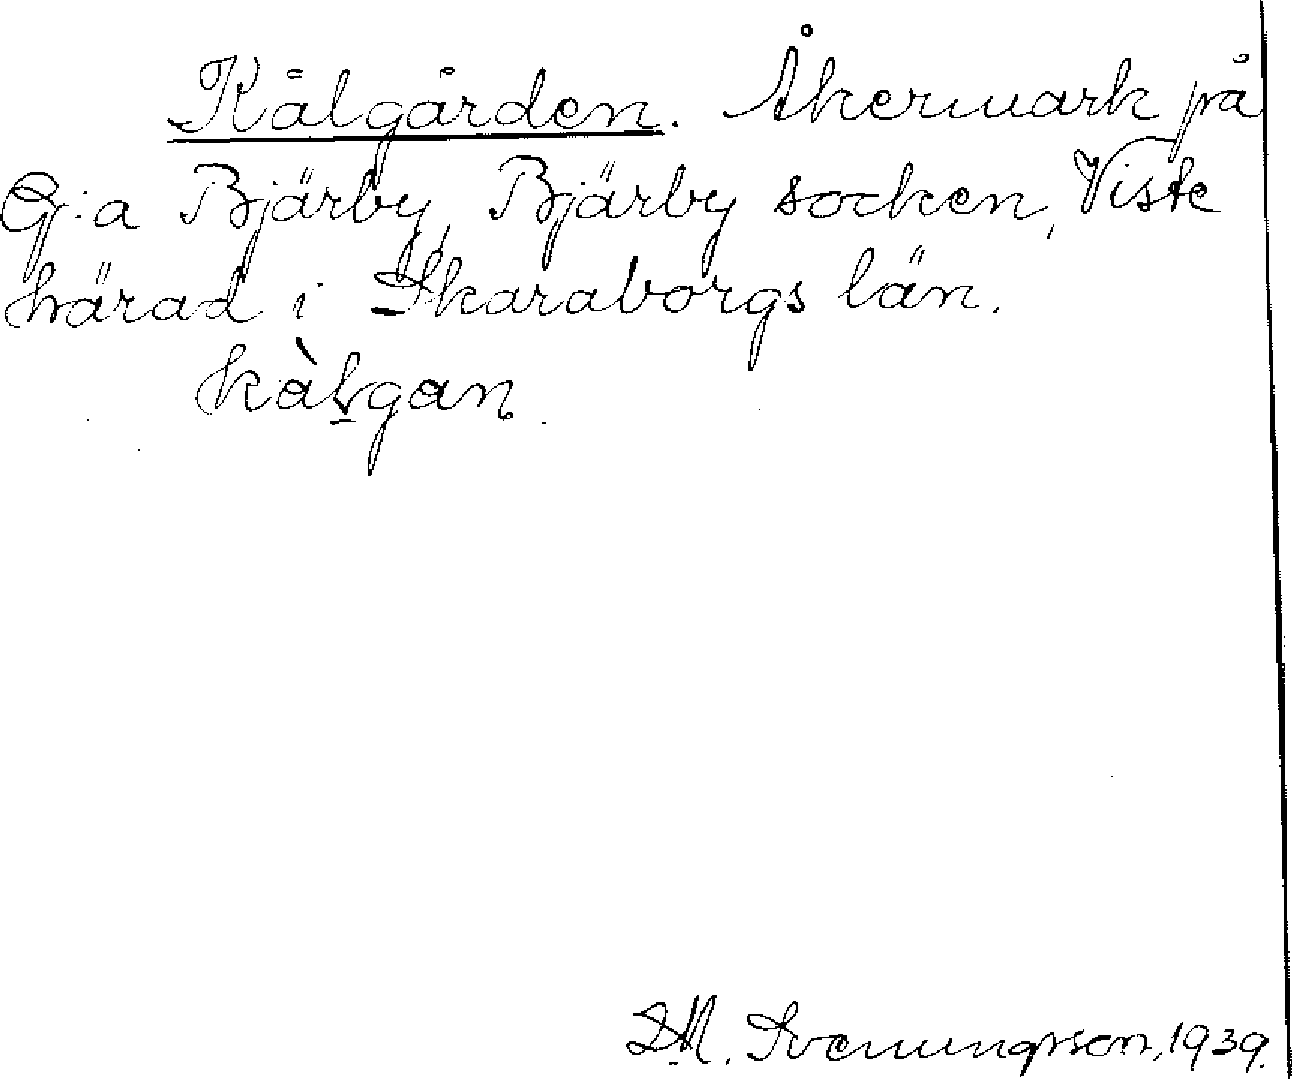 Kålgården. Åkermark på
G:a Bjärby, Bjärby socken, Viste
härad i Skaraborgs län.
kàḷgan
D.M. Svenungsson, 1939.